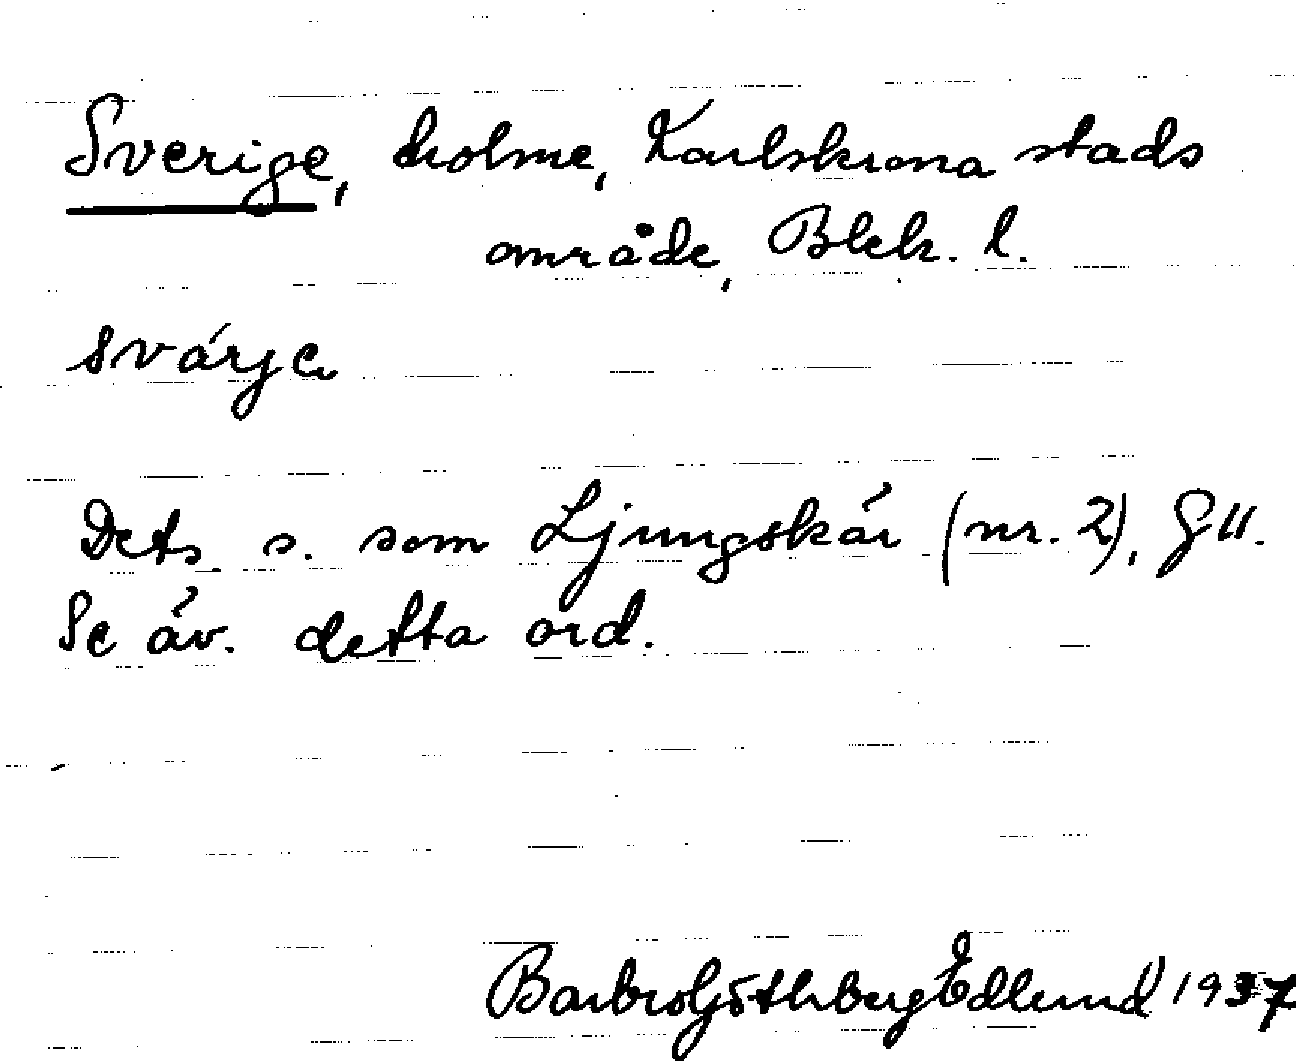 Sverige, holme, Karlskrona stads
område, Blek. l.
svárje
Dets. s. som Ljungskär (nr. 2), GU.
Se äv. detta ord.
Barbro Göthberg Edlund 1937